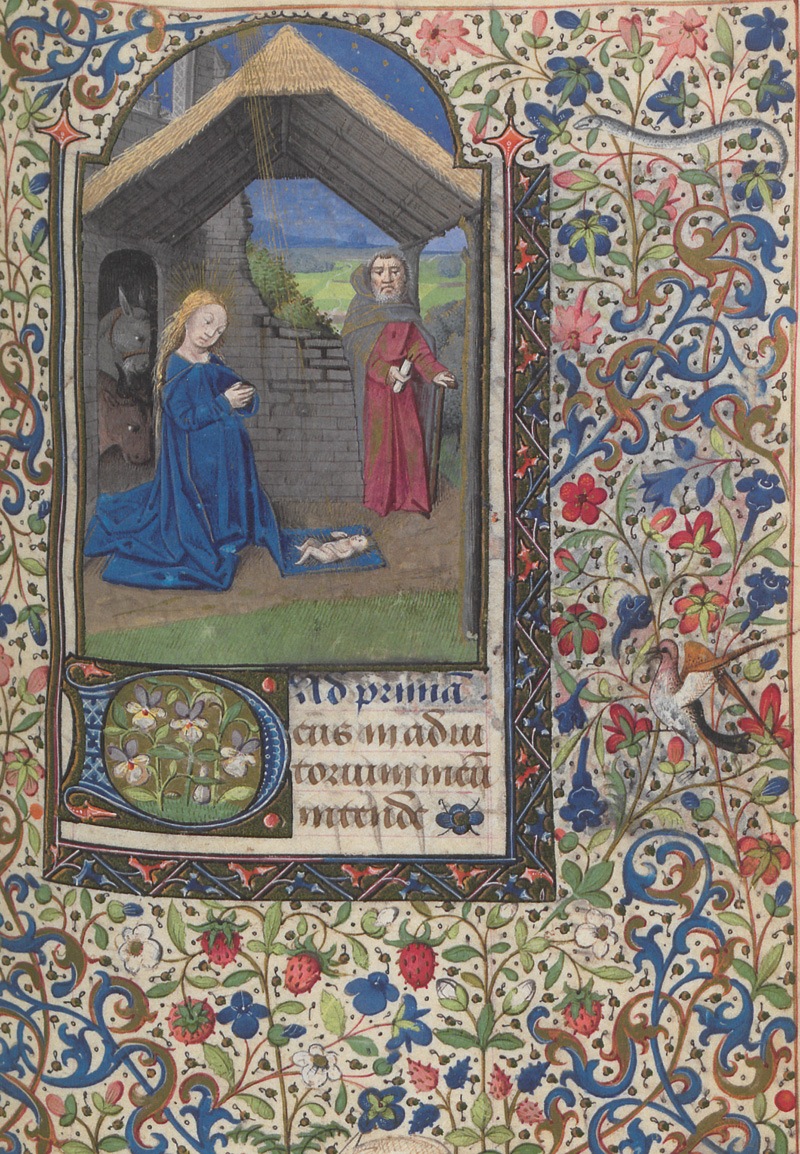 Ad primā
Deus in adiu
torium meū
intende